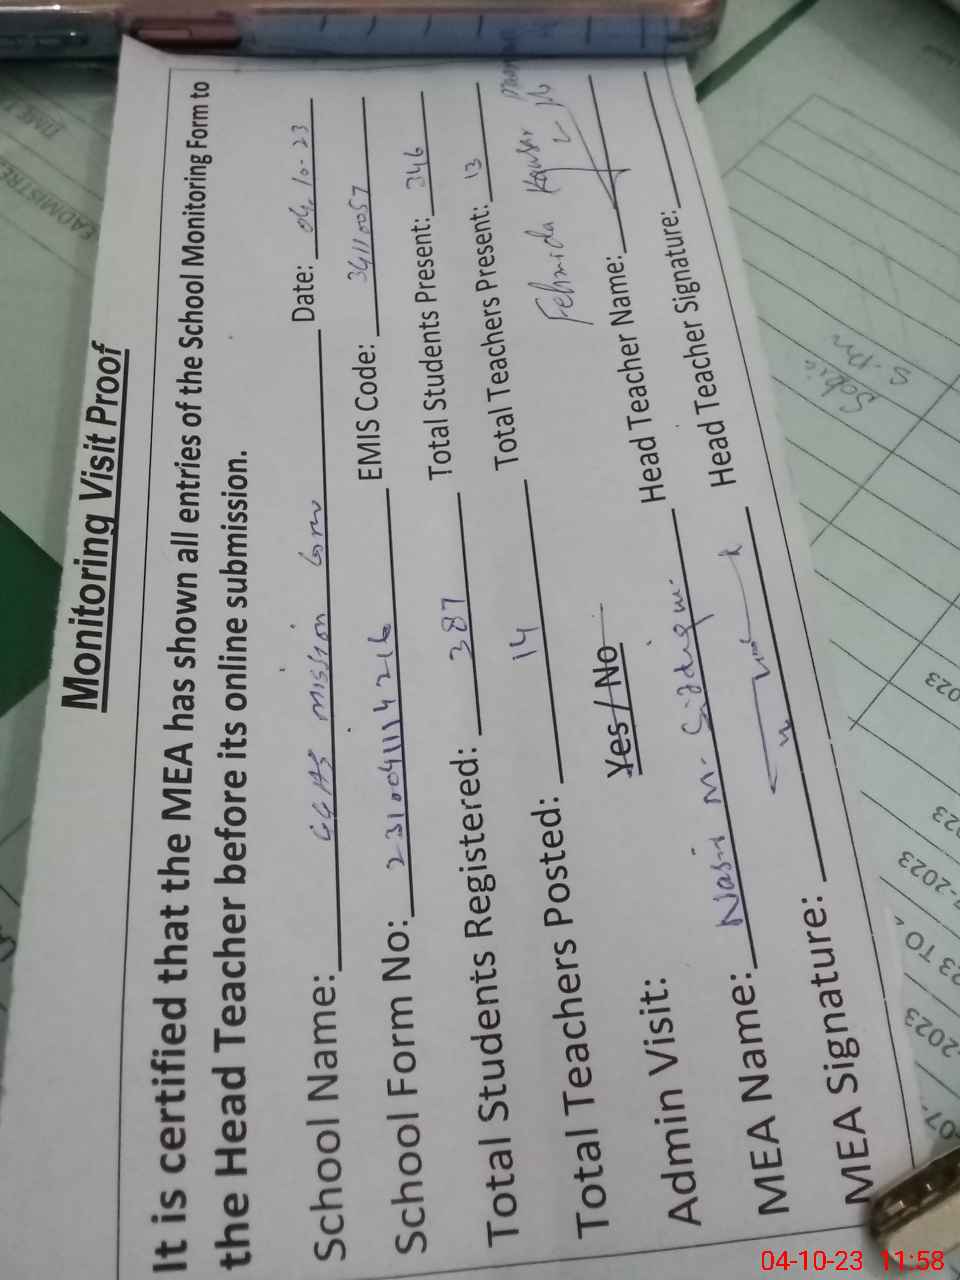 Monitoring Visit Proof
It is certified that the MEA has shown all entries of the School Monitoring Form to
the Head Teacher before its online submission.
School Name: GGHS mission Grw Date: 04.10.23
School Form No: EMIS Code: 34110057
Total Students Registered: 387 Total Students Present: 346
Total Teachers Posted: 14 Total Teachers Present: 13
Fehmida Kousar
Admin Visit: Yes/No Head Teacher Name:
MEA Name: Nasir M. Head Teacher Signature:
MEA Signature:
Sobia
04-10-23 11:58
2023
-2023
23 TO
2023
07-